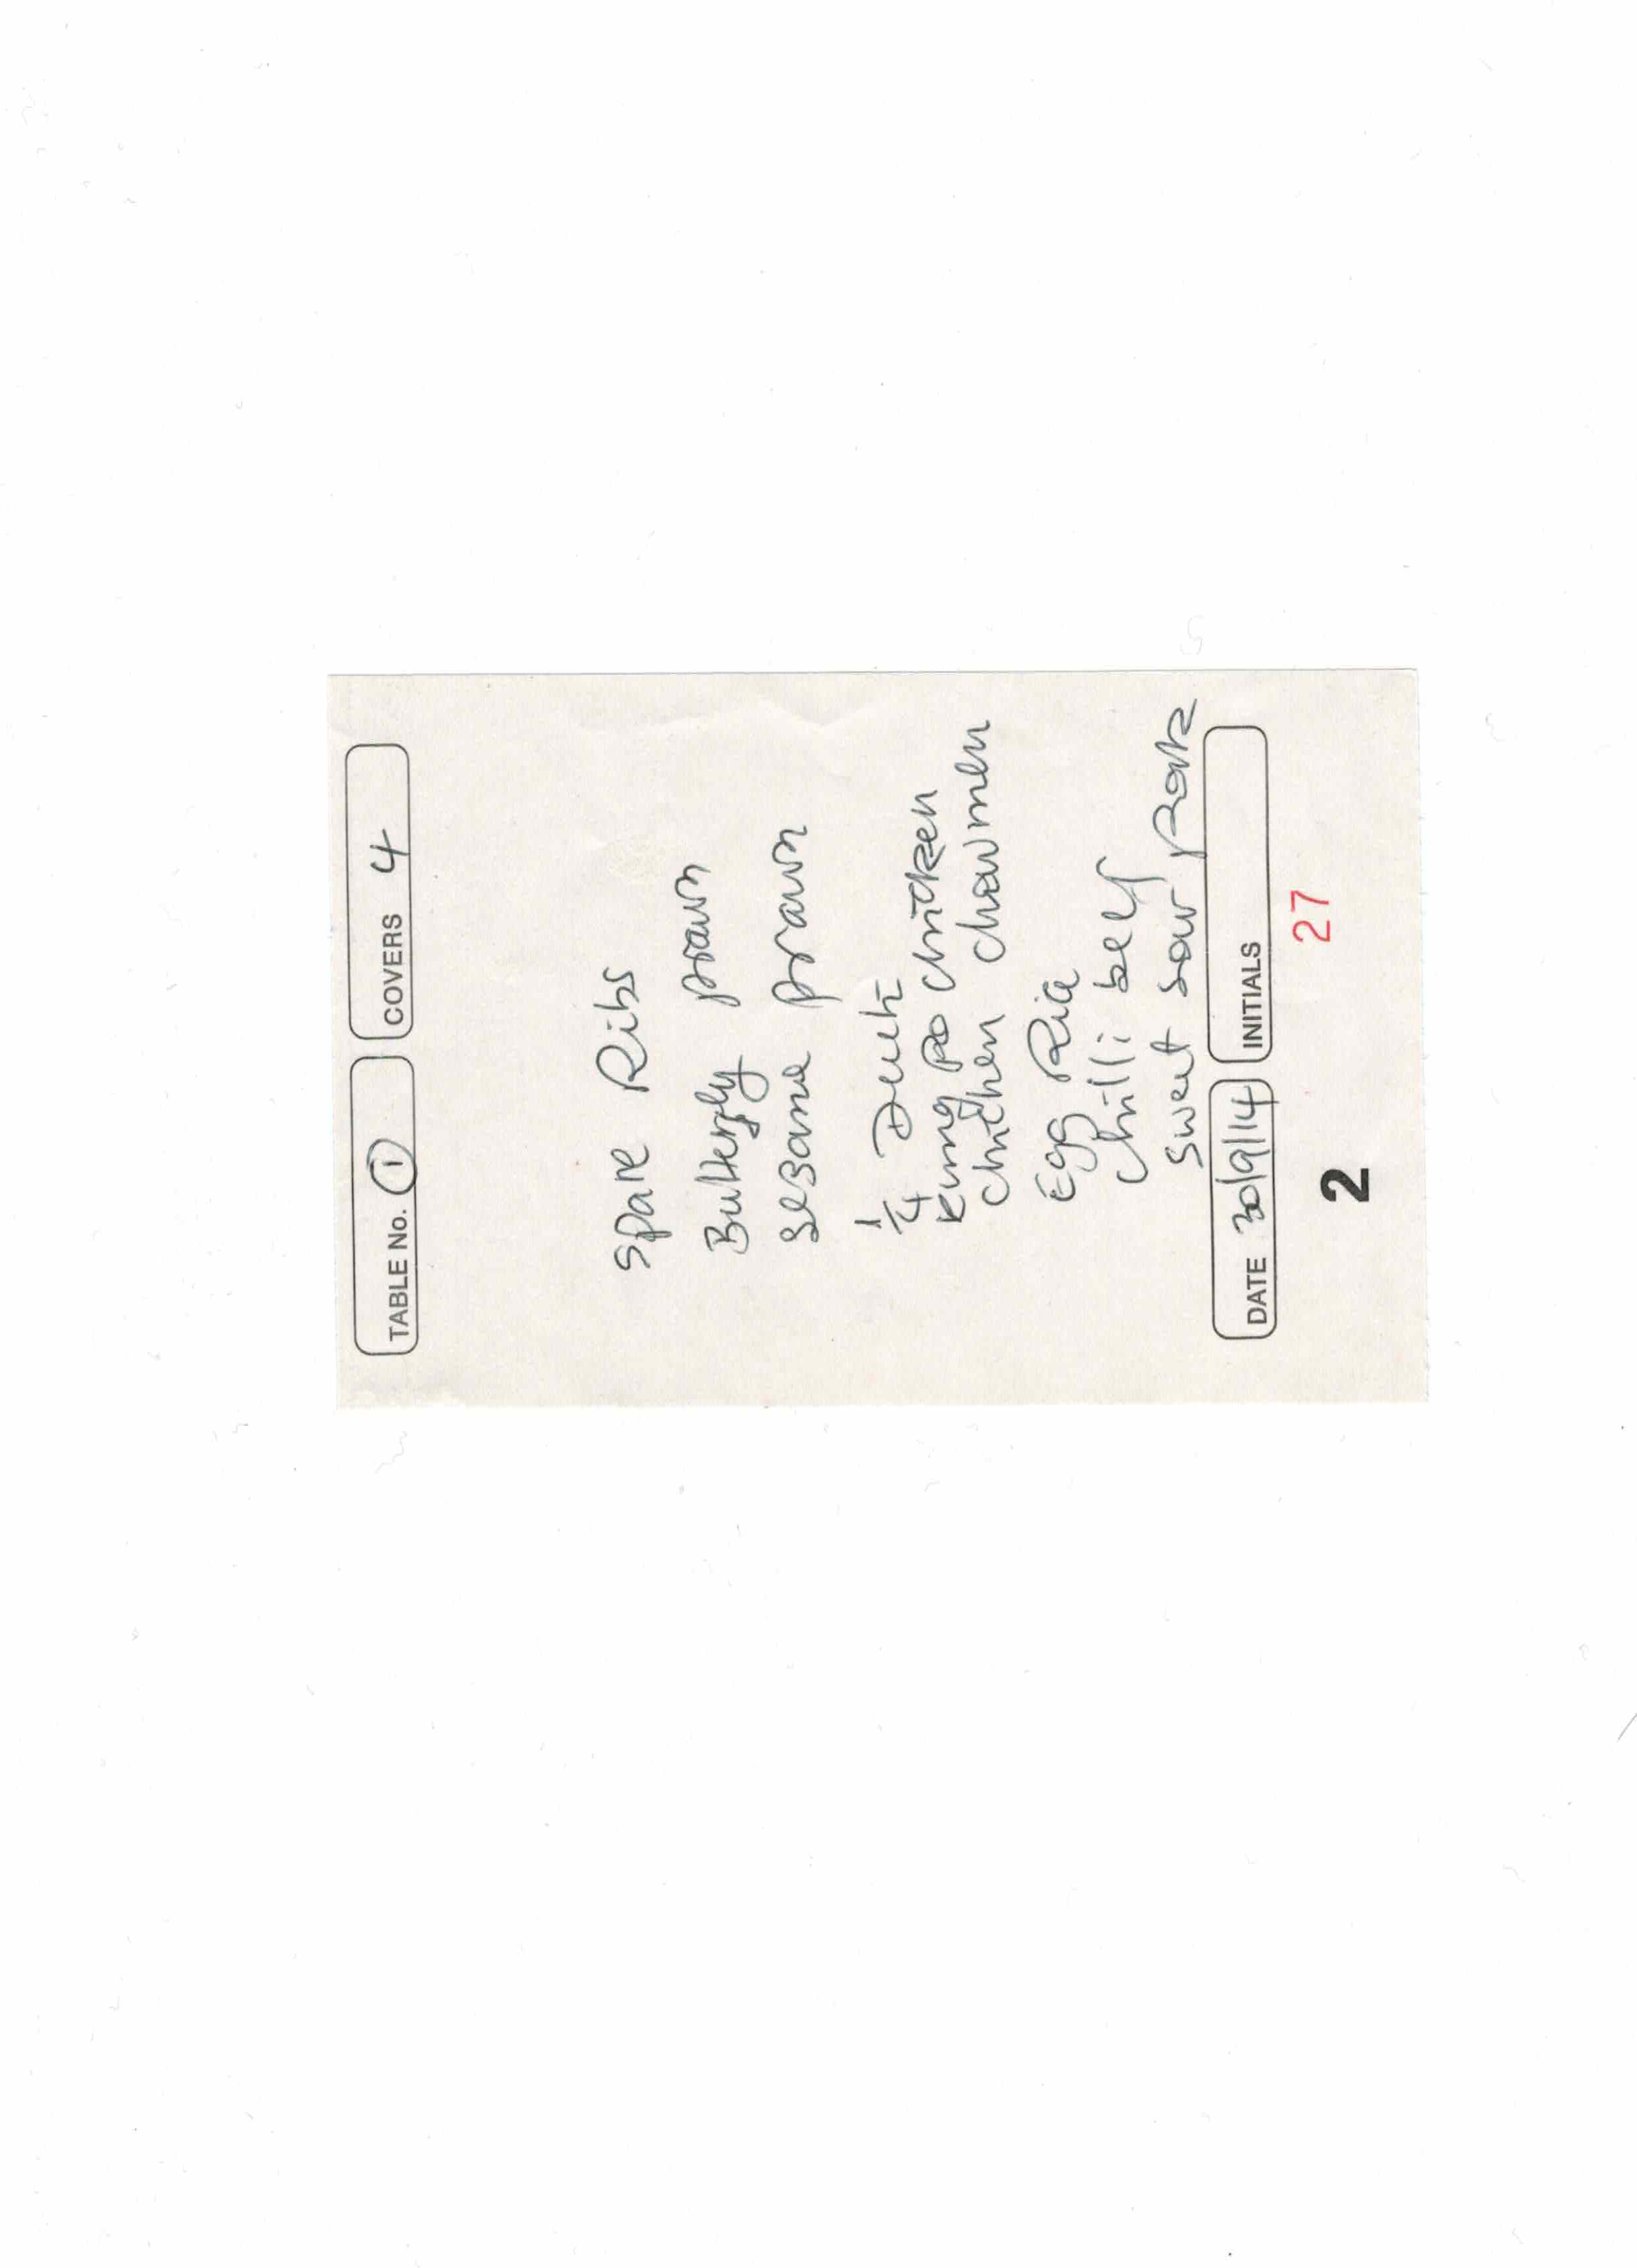 TABLE No. 1 COVERS 4
Spare Ribs
Butterfly prawn
Sesame prawn
1/4 Duck
Kung Po chicken
chicken chowmen
Egg Rice
Chilli beef
Sweet sour pork
DATE 30/9/14 INITIALS
2 27